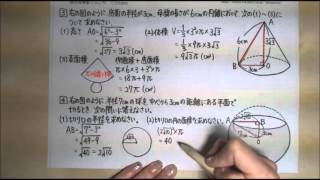 3 右の図のように、底面の半径が3cm、母線の長さが6cmの円錐において、次の(1)~(3)に
ついて求めなさい。
(1) 高さ A0=√6²-3²
=√36-9
=√27=3√3(cm)
(2) 体積 V=1/3×π×3²×3√3
=1/3×9π×3√3
=9√3π(cm³)
(3) 表面積
側面積+底面積
π×6×3+3²×π
=18π+9π
=27π(cm²)
6cm
3cm
4 右の図のように半径7cmの球を中心から3cmの距離にある平面で
切るとき、次の問いに答えなさい。
(1) 切り口の半径を求めなさい。
AB=√7²-3²
=√49-9
=√40=2√10
(2) 切り口の円の面積を求めなさい。
(2√10)²×π
=40